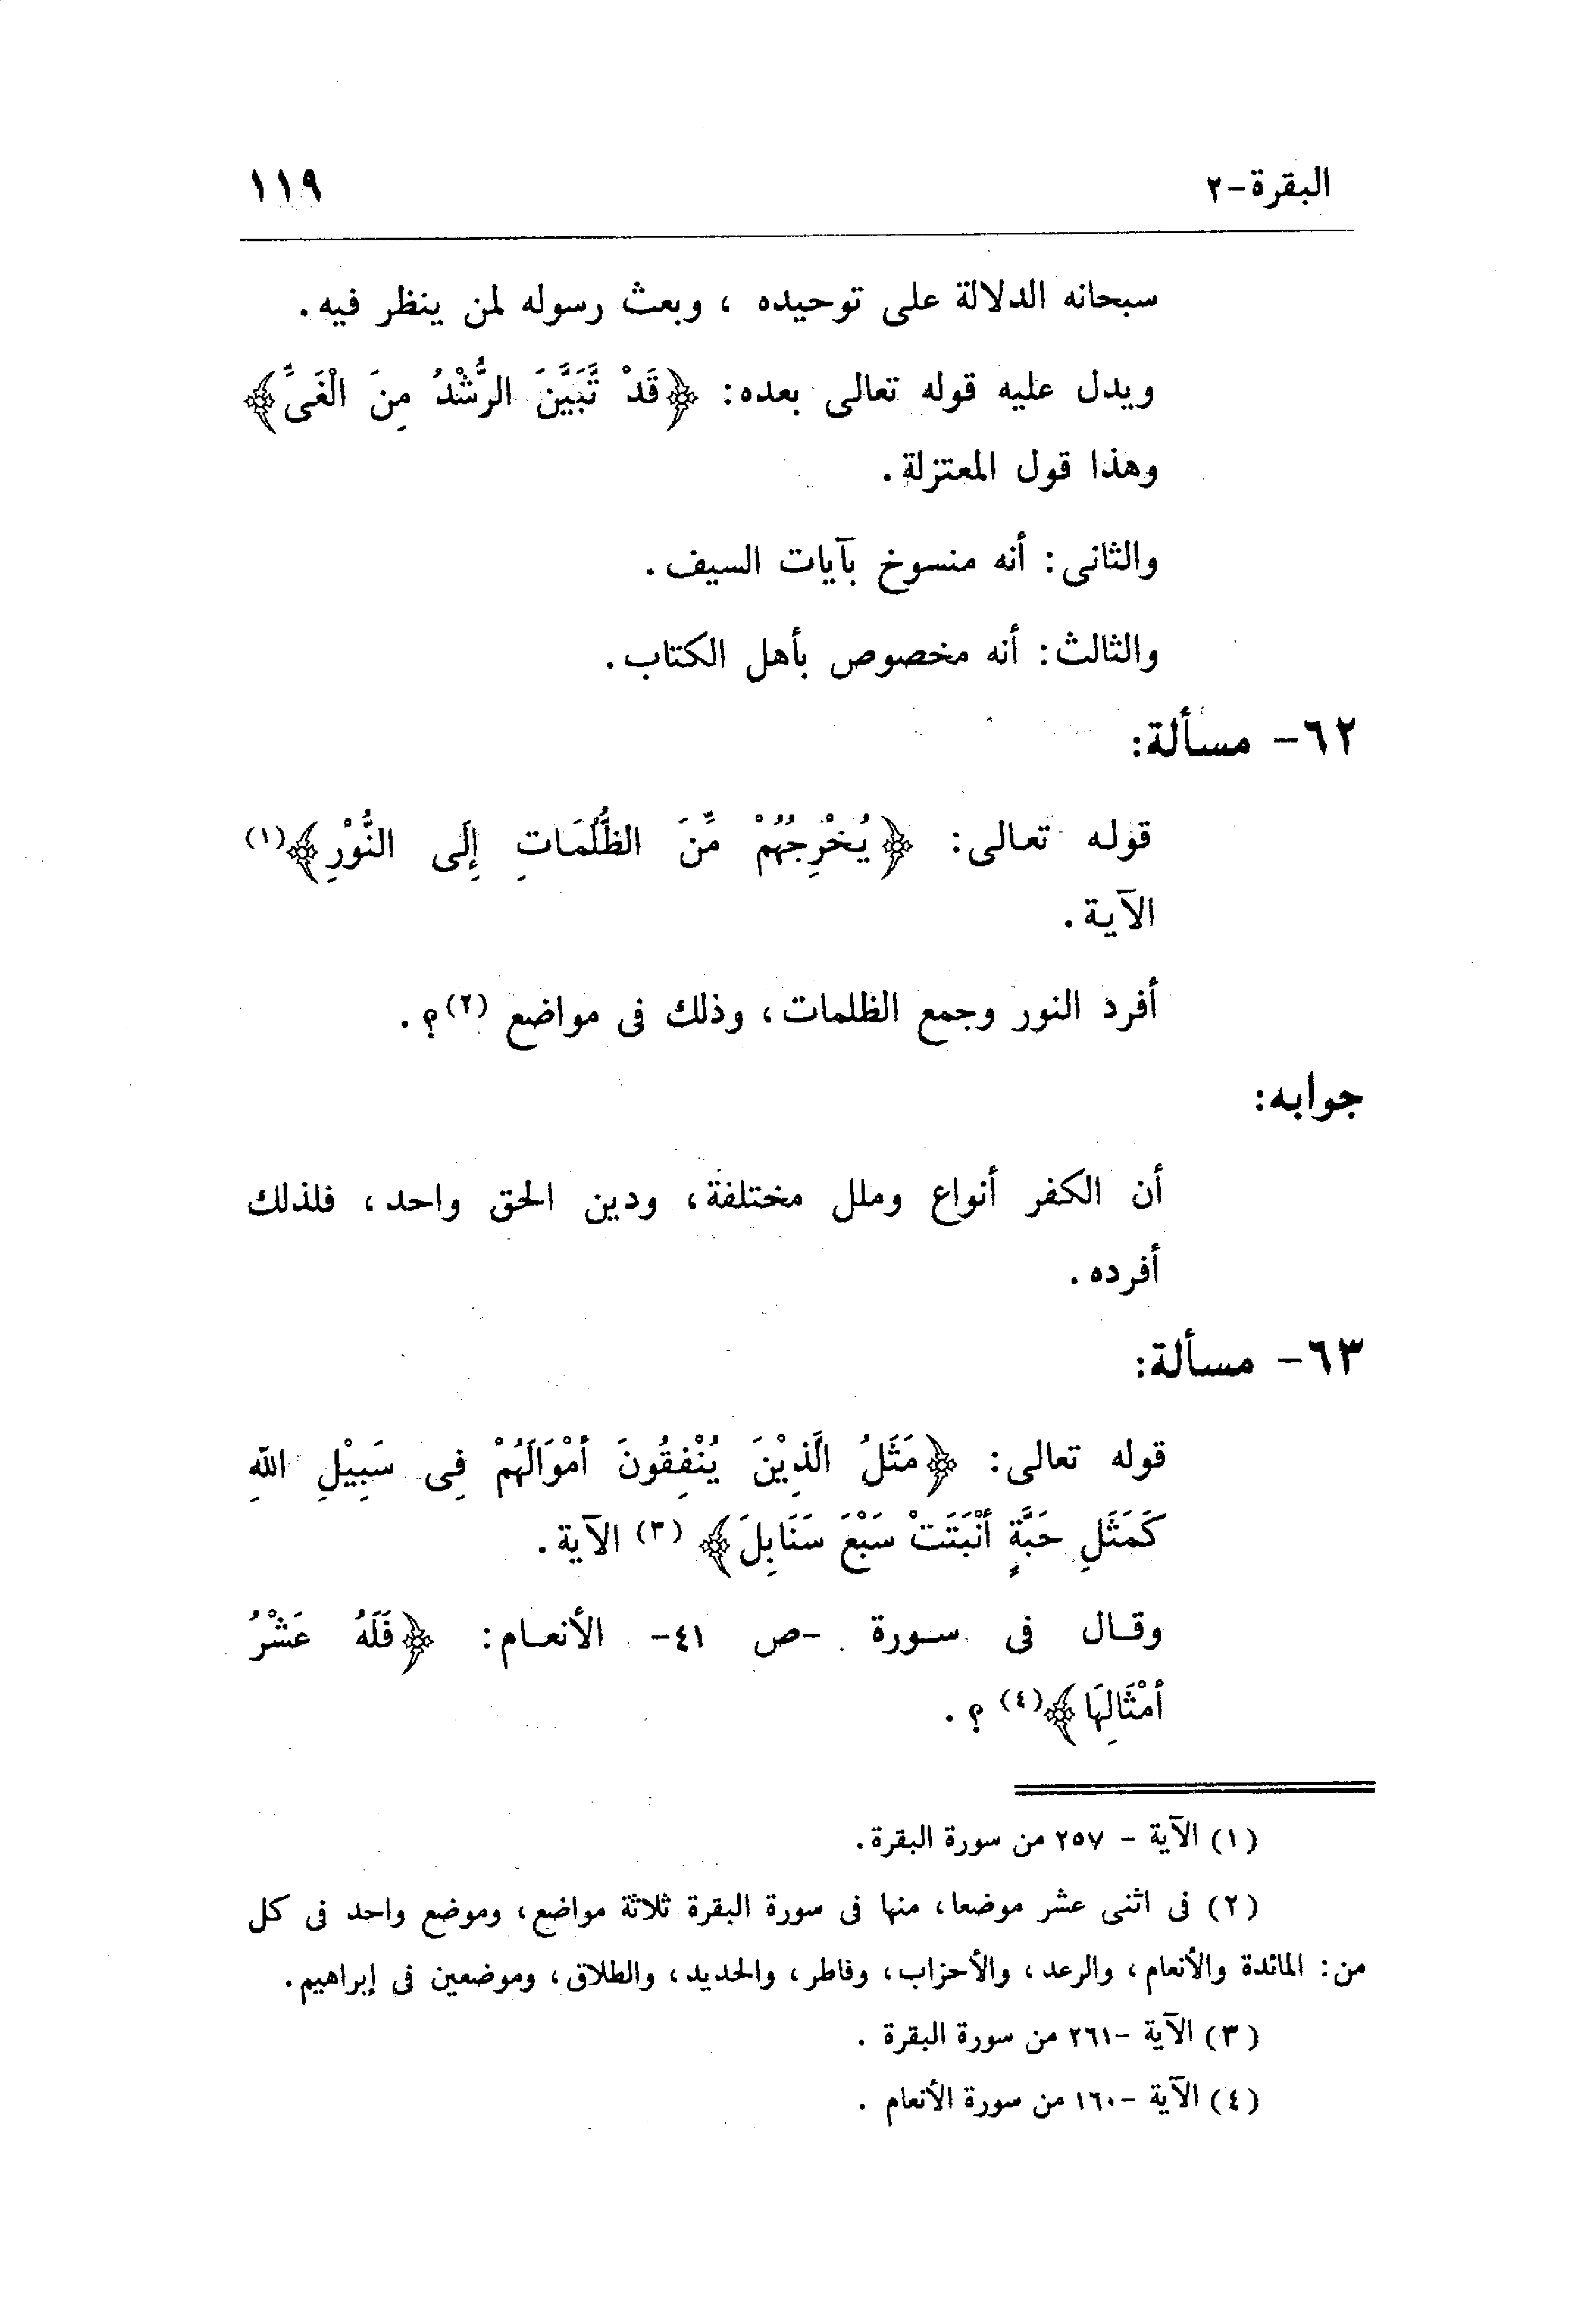 البقرة-٢ ١١٩
سبحانه الدلالة على توحيده ، وبعث رسوله لمن ينظر فيه.
ويدل عليه قوله تعالى بعده: ﴿قَدْ تَّبَيَّنَ الرُّشْدُ مِنَ الْغَىِّ﴾
وهذا قول المعتزلة.
والثانى: أنه منسوخ بآيات السيف.
والثالث: أنه مخصوص بأهل الكتاب.
٦٢- مسألة:
قوله تعالى: ﴿يُخْرِجُهُمْ مِّنَ الظُّلُمَاتِ إِلَى النُّوْرِ﴾(١)
الآية.
أفرد النور وجمع الظلمات، وذلك فى مواضع (٢)؟.
جوابه:
أن الكفر أنواع وملل مختلفة، ودين الحق واحد، فلذلك
أفرده.
٦٣- مسألة:
قوله تعالى: ﴿مَثَلُ الَّذِيْنَ يُنْفِقُونَ أمْوَالَهُمْ فِى سَبِيْلِ اللهِ
كَمَثَلِ حَبَّةٍ أنْبَتَتْ سَبْعَ سَنَابِلَ﴾ (٣) الآية.
وقال فى سورة -ص ٤١- الأنعام: ﴿فَلَهُ عَشْرُ
أمْثَالِهَا﴾(٤) ؟.
(١) الآية - ٢٥٧ من سورة البقرة.
(٢) فى اثنى عشر موضعا، منها فى سورة البقرة ثلاثة مواضع، وموضع واحد فى كل
من: المائدة والأنعام، والرعد، والأحزاب، وفاطر، والحديد، والطلاق، وموضعين فى إبراهيم.
(٣) الآية -٢٦١ من سورة البقرة .
(٤) الآية -١٦٠ من سورة الأنعام .